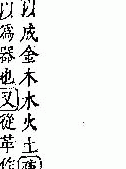 以成金木水火土
以爲器也又從革作